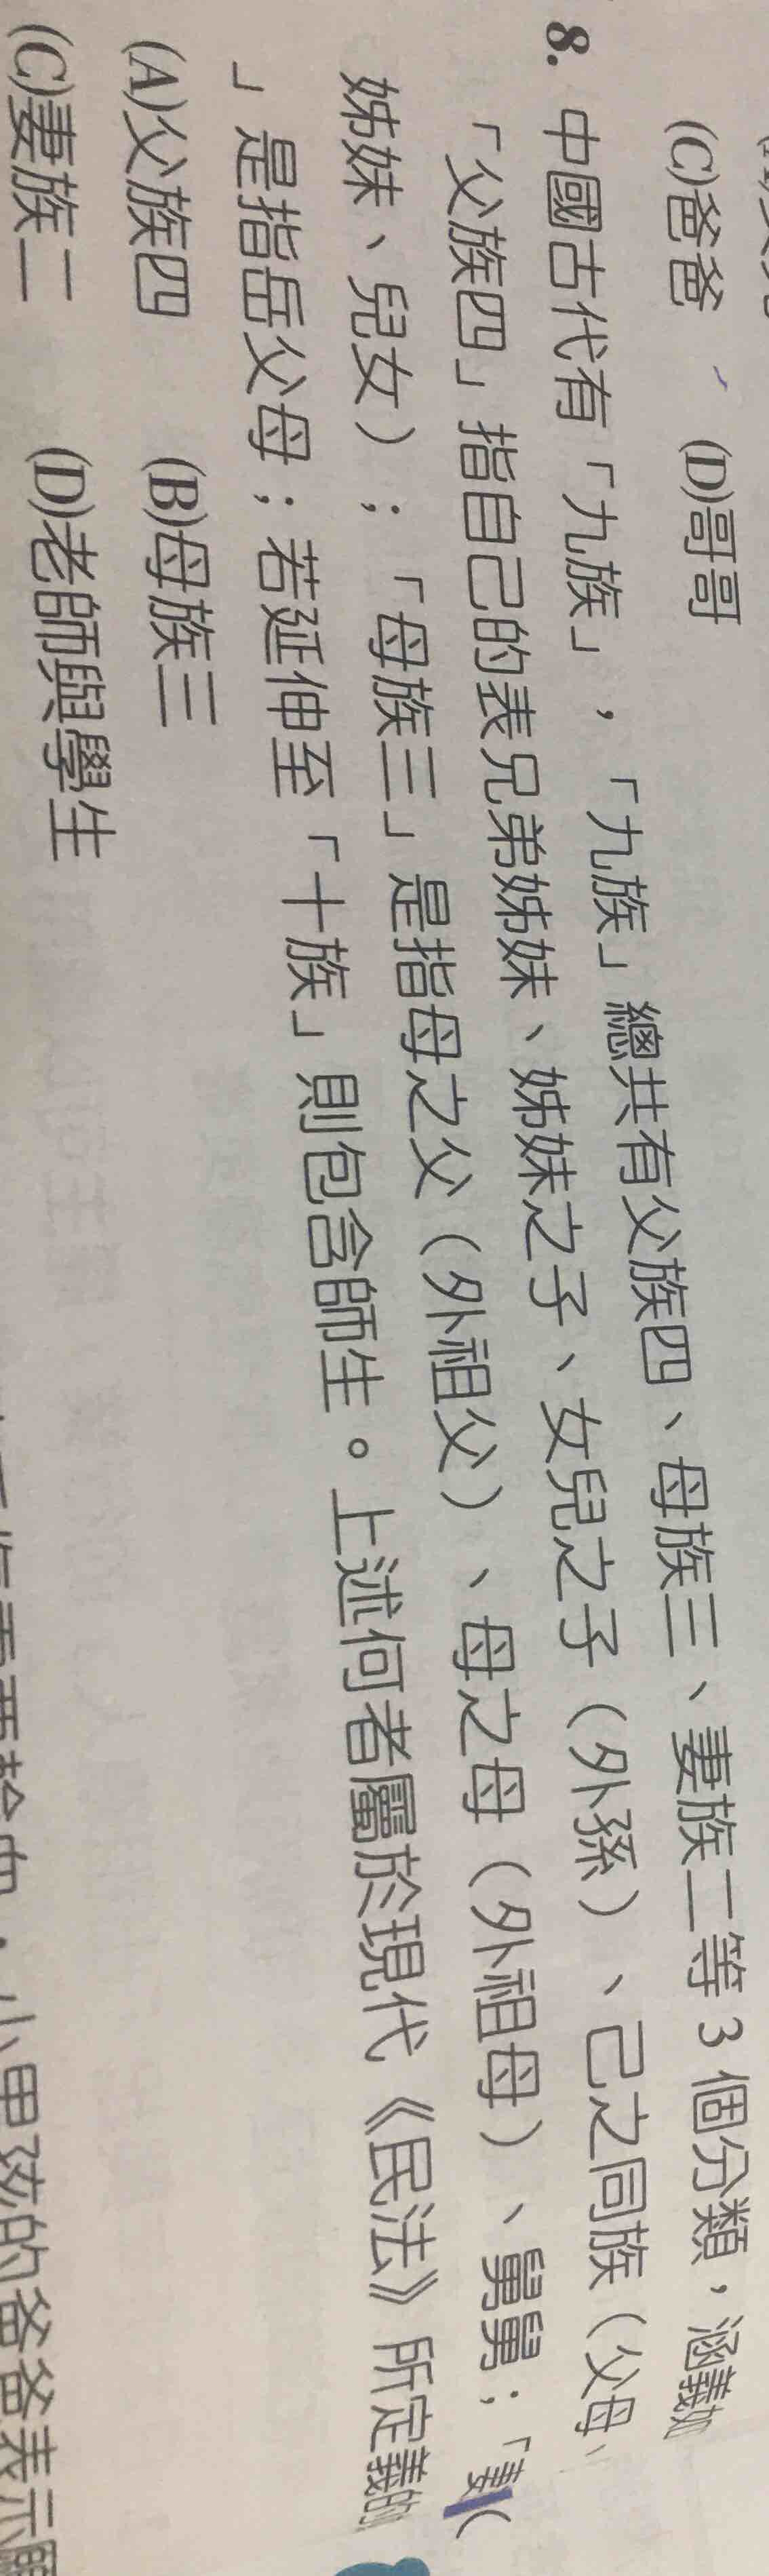 (C)爸爸 (D)哥哥
8. 中國古代有「九族」，「九族」總共有父族四、母族三、妻族二等 3 個分類，涵義如
「父族四」指自己的表兄弟姊妹、姊妹之子、女兒之子（外孫）、己之同族（父母、
姊妹、兒女）；「母族三」是指母之父（外祖父）、母之母（外祖母）、舅舅；「妻
」是指岳父母；若延伸至「十族」則包含師生。上述何者屬於現代《民法》所定義的
(A)父族四 (B)母族三
(C)妻族二 (D)老師與學生
小男孩的爸爸表示願